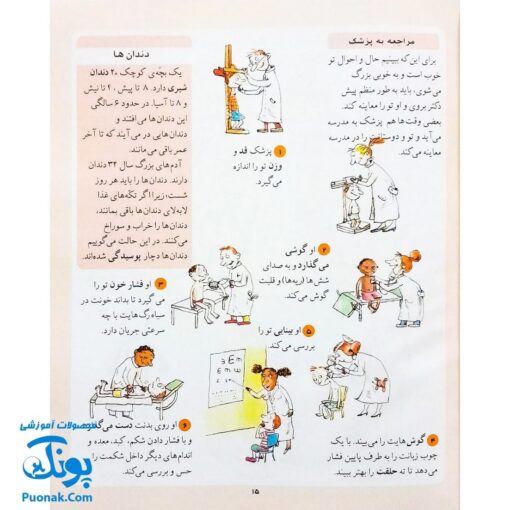 مراجعه به پزشک
برای این‌که ببینیم حال و احوال تو
خوب است و به خوبی بزرگ
می‌شوی، باید به طور منظم پیش
دکتر بروی و او تو را معاینه کند.
بعضی وقت‌ها هم پزشک به مدرسه
می‌آید و تو و دوستانت را در مدرسه
معاینه می‌کند.
دندان ها
یک بچه‌ی کوچک ۲۰ دندان
شیری دارد. ۸ تا پیش، ۴ تا نیش
و ۸ تا آسیا. در حدود ۶ سالگی
این دندان‌ها می‌افتند و
دندان‌هایی در می‌آیند که تا آخر
عمر باقی می‌مانند.
آدم‌های بزرگ سال ۳۲ دندان
دارند. دندان‌ها را باید هر روز
شست؛ زیرا اگر تکّه‌های غذا
لابه‌لای دندان‌ها باقی بمانند،
دندان‌ها را خراب و سوراخ
می‌کنند. در این حالت می‌گوییم
دندان‌ها دچار پوسیدگی شده‌اند.
۱ پزشک قد و
وزن تو را اندازه
می‌گیرد.
۲ او گوشی
می‌گذارد و به صدای
شش‌ها (ریه‌ها) و قلبت
گوش می‌کند.
۳ او فشار خون تو را
می گیرد تا بداند خونت در
سیاه‌رگ‌هایت با چه
سرعتی جریان دارد.
۴ گوش‌هایت را می‌بیند. با یک
چوب زبانت را به طرف پایین فشار
می‌دهد تا ته حلقت را بهتر ببیند
۵ او بینایی تو را
بررسی می‌کند.
۶ او روی بدنت دست می‌گذارد
و با فشار دادن شکم، کبد، معده و
اندام‌های دیگر داخل شکمت را
حس و بررسی می‌کند.
۱۵
محصولات آموزشی
پونک
Puonak.Com